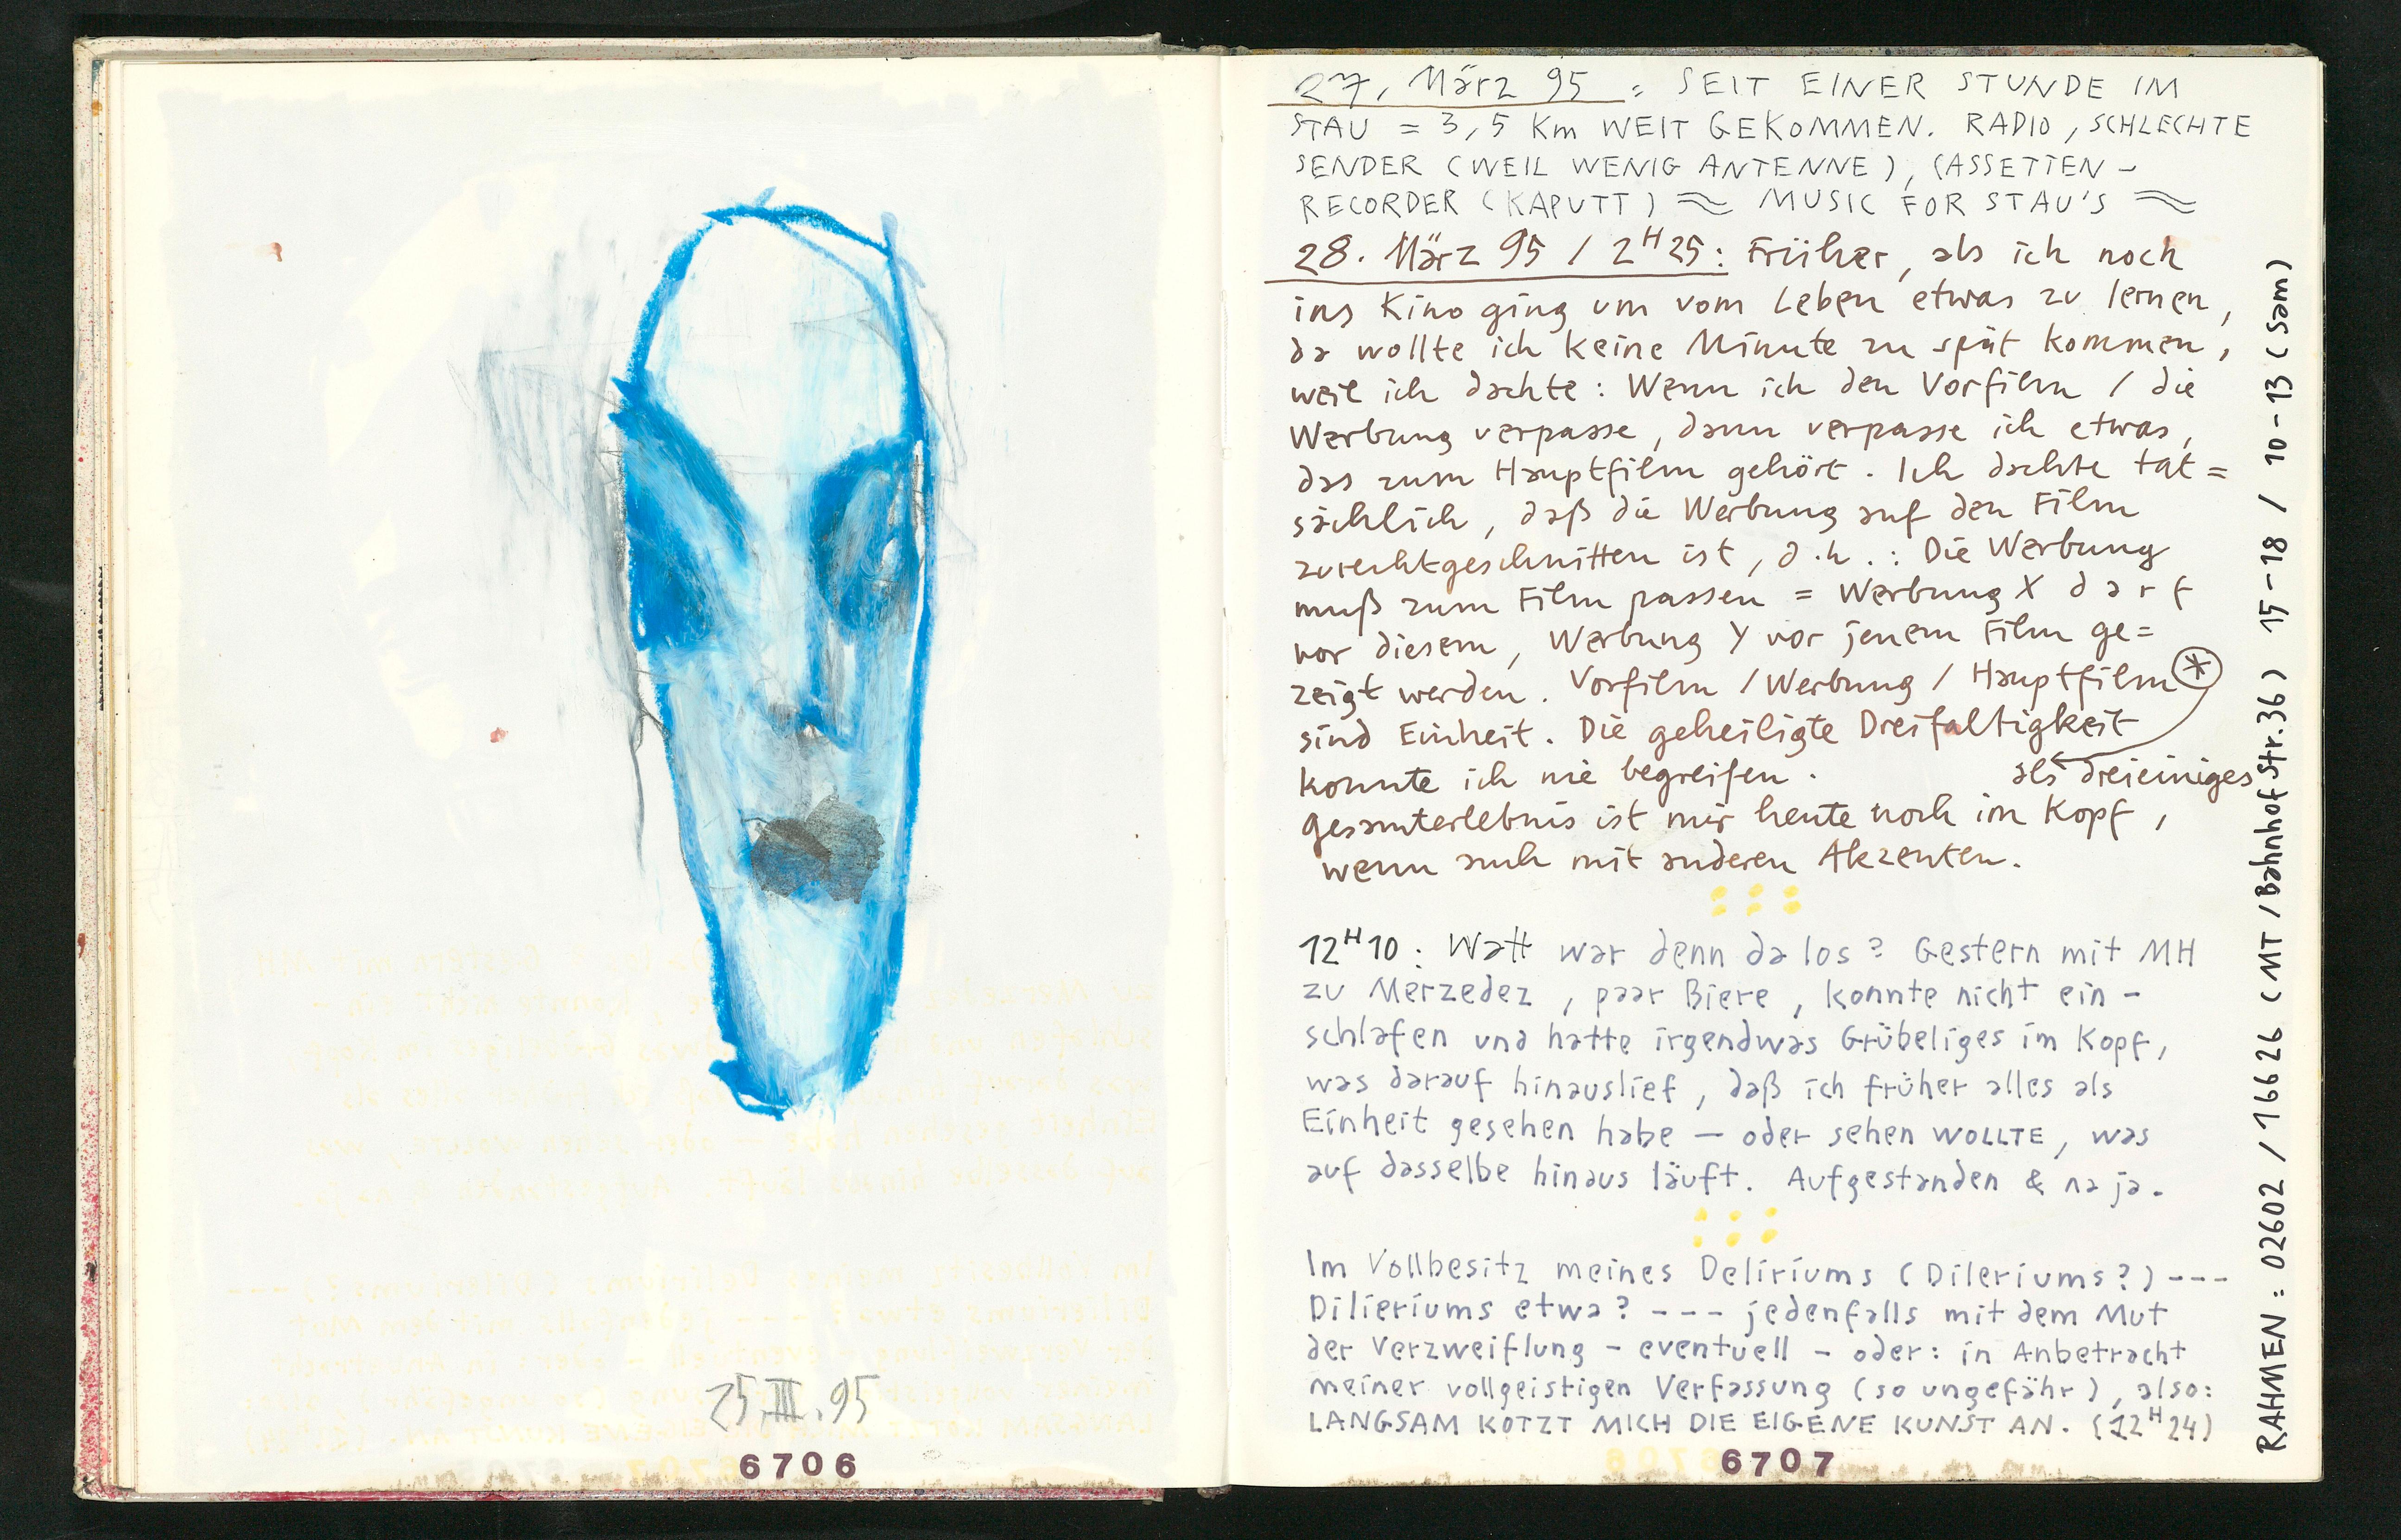 25.III.95
6706
27. März 95 : SEIT EINER STUNDE IM
STAU = 3,5 Km WEIT GEKOMMEN. RADIO, SCHLECHTE
SENDER (WEIL WENIG ANTENNE), CASSETTEN-
RECORDER (KAPUTT) ≈ MUSIC FOR STAU'S ≈
28. März 95 / 2H25: Früher, als ich noch
ins Kino ging um vom Leben etwas zu lernen,
da wollte ich keine Minute zu spät kommen,
weil ich dachte: Wenn ich den Vorfilm / die
Werbung verpasse, dann verpasse ich etwas,
das zum Hauptfilm gehört. Ich dachte tat=
sächlich, daß die Werbung auf den Film
zurechtgeschnitten ist, d.h.: Die Werbung
muß zum Film passen = Werbung X darf
vor diesem, Werbung Y vor jenem Film ge=
zeigt werden. Vorfilm / Werbung / Hauptfilm *
sind Einheit. Die geheiligte Dreifaltigkeit
konnte ich nie begreifen. als dreieiniges
Gesamterlebnis ist mir heute noch im Kopf,
wenn auch mit anderen Akzenten.
12H10: Watt war denn da los? Gestern mit MH
zu Merzedez, paar Biere, konnte nicht ein-
schlafen und hatte irgendwas Grübeliges im Kopf,
was darauf hinauslief, daß ich früher alles als
Einheit gesehen habe – oder sehen WOLLTE, was
auf dasselbe hinaus läuft. Aufgestanden & na ja.
Im Vollbesitz meines Deliriums (Dileriums?) ---
Dilieriums etwa? --- jedenfalls mit dem Mut
der Verzweiflung – eventuell – oder: in Anbetracht
meiner vollgeistigen Verfassung (so ungefähr), also:
LANGSAM KOTZT MICH DIE EIGENE KUNST AN. (12H24)
6707
RAHMEN: 02602 / 16626 (MT / Bahnhofstr. 36) 15-18 / 10-13 (Sam)